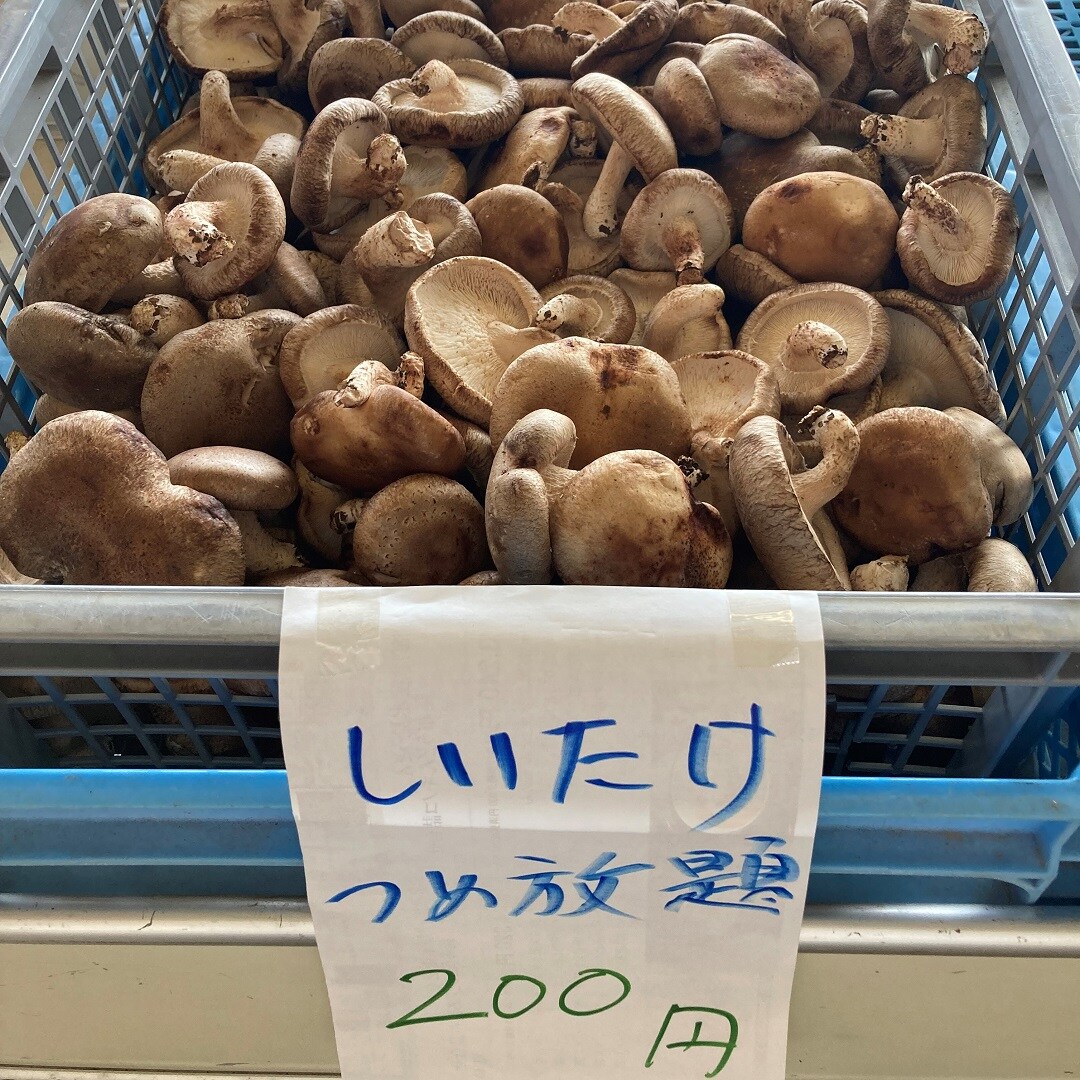 しいたけ
つめ放題
200円